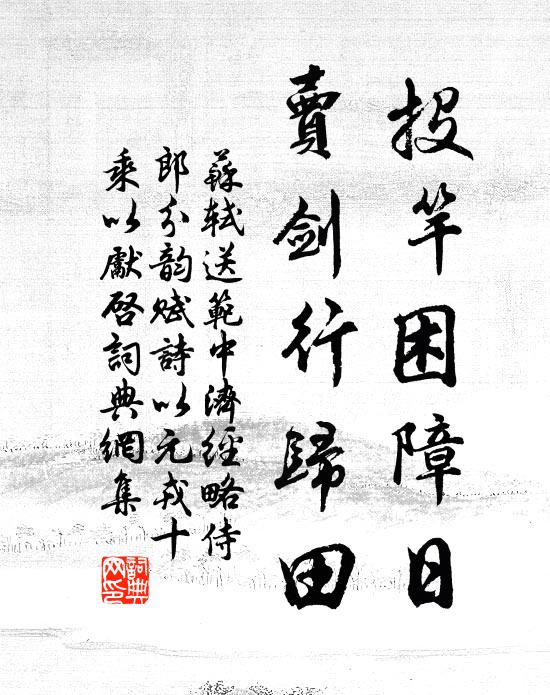 投竿困障日
賣劍行歸田
蘇軾送範中濟經略侍
郎分韻賦詩以元戎十
乘以啟行為韻詞典網集